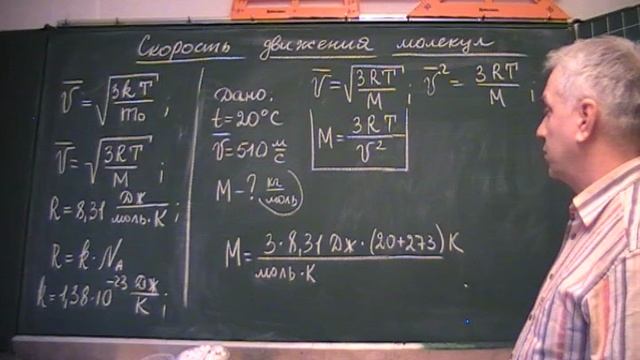 Скорость движения молекул
v̅ = √(3kT/m₀) ;
v̅ = √(3RT/M) ;
R = 8,31 Дж/(моль·K) ;
R = k · N_A
k = 1,38·10⁻²³ Дж/K ;
Дано.
t = 20°C
v̅ = 510 м/с
M - ? (кг/моль)
v̅ = √(3RT/M) ; v̅² = 3RT/M ;
M = 3RT/v̅²
M = 3·8,31 Дж·(20+273)K
моль·K